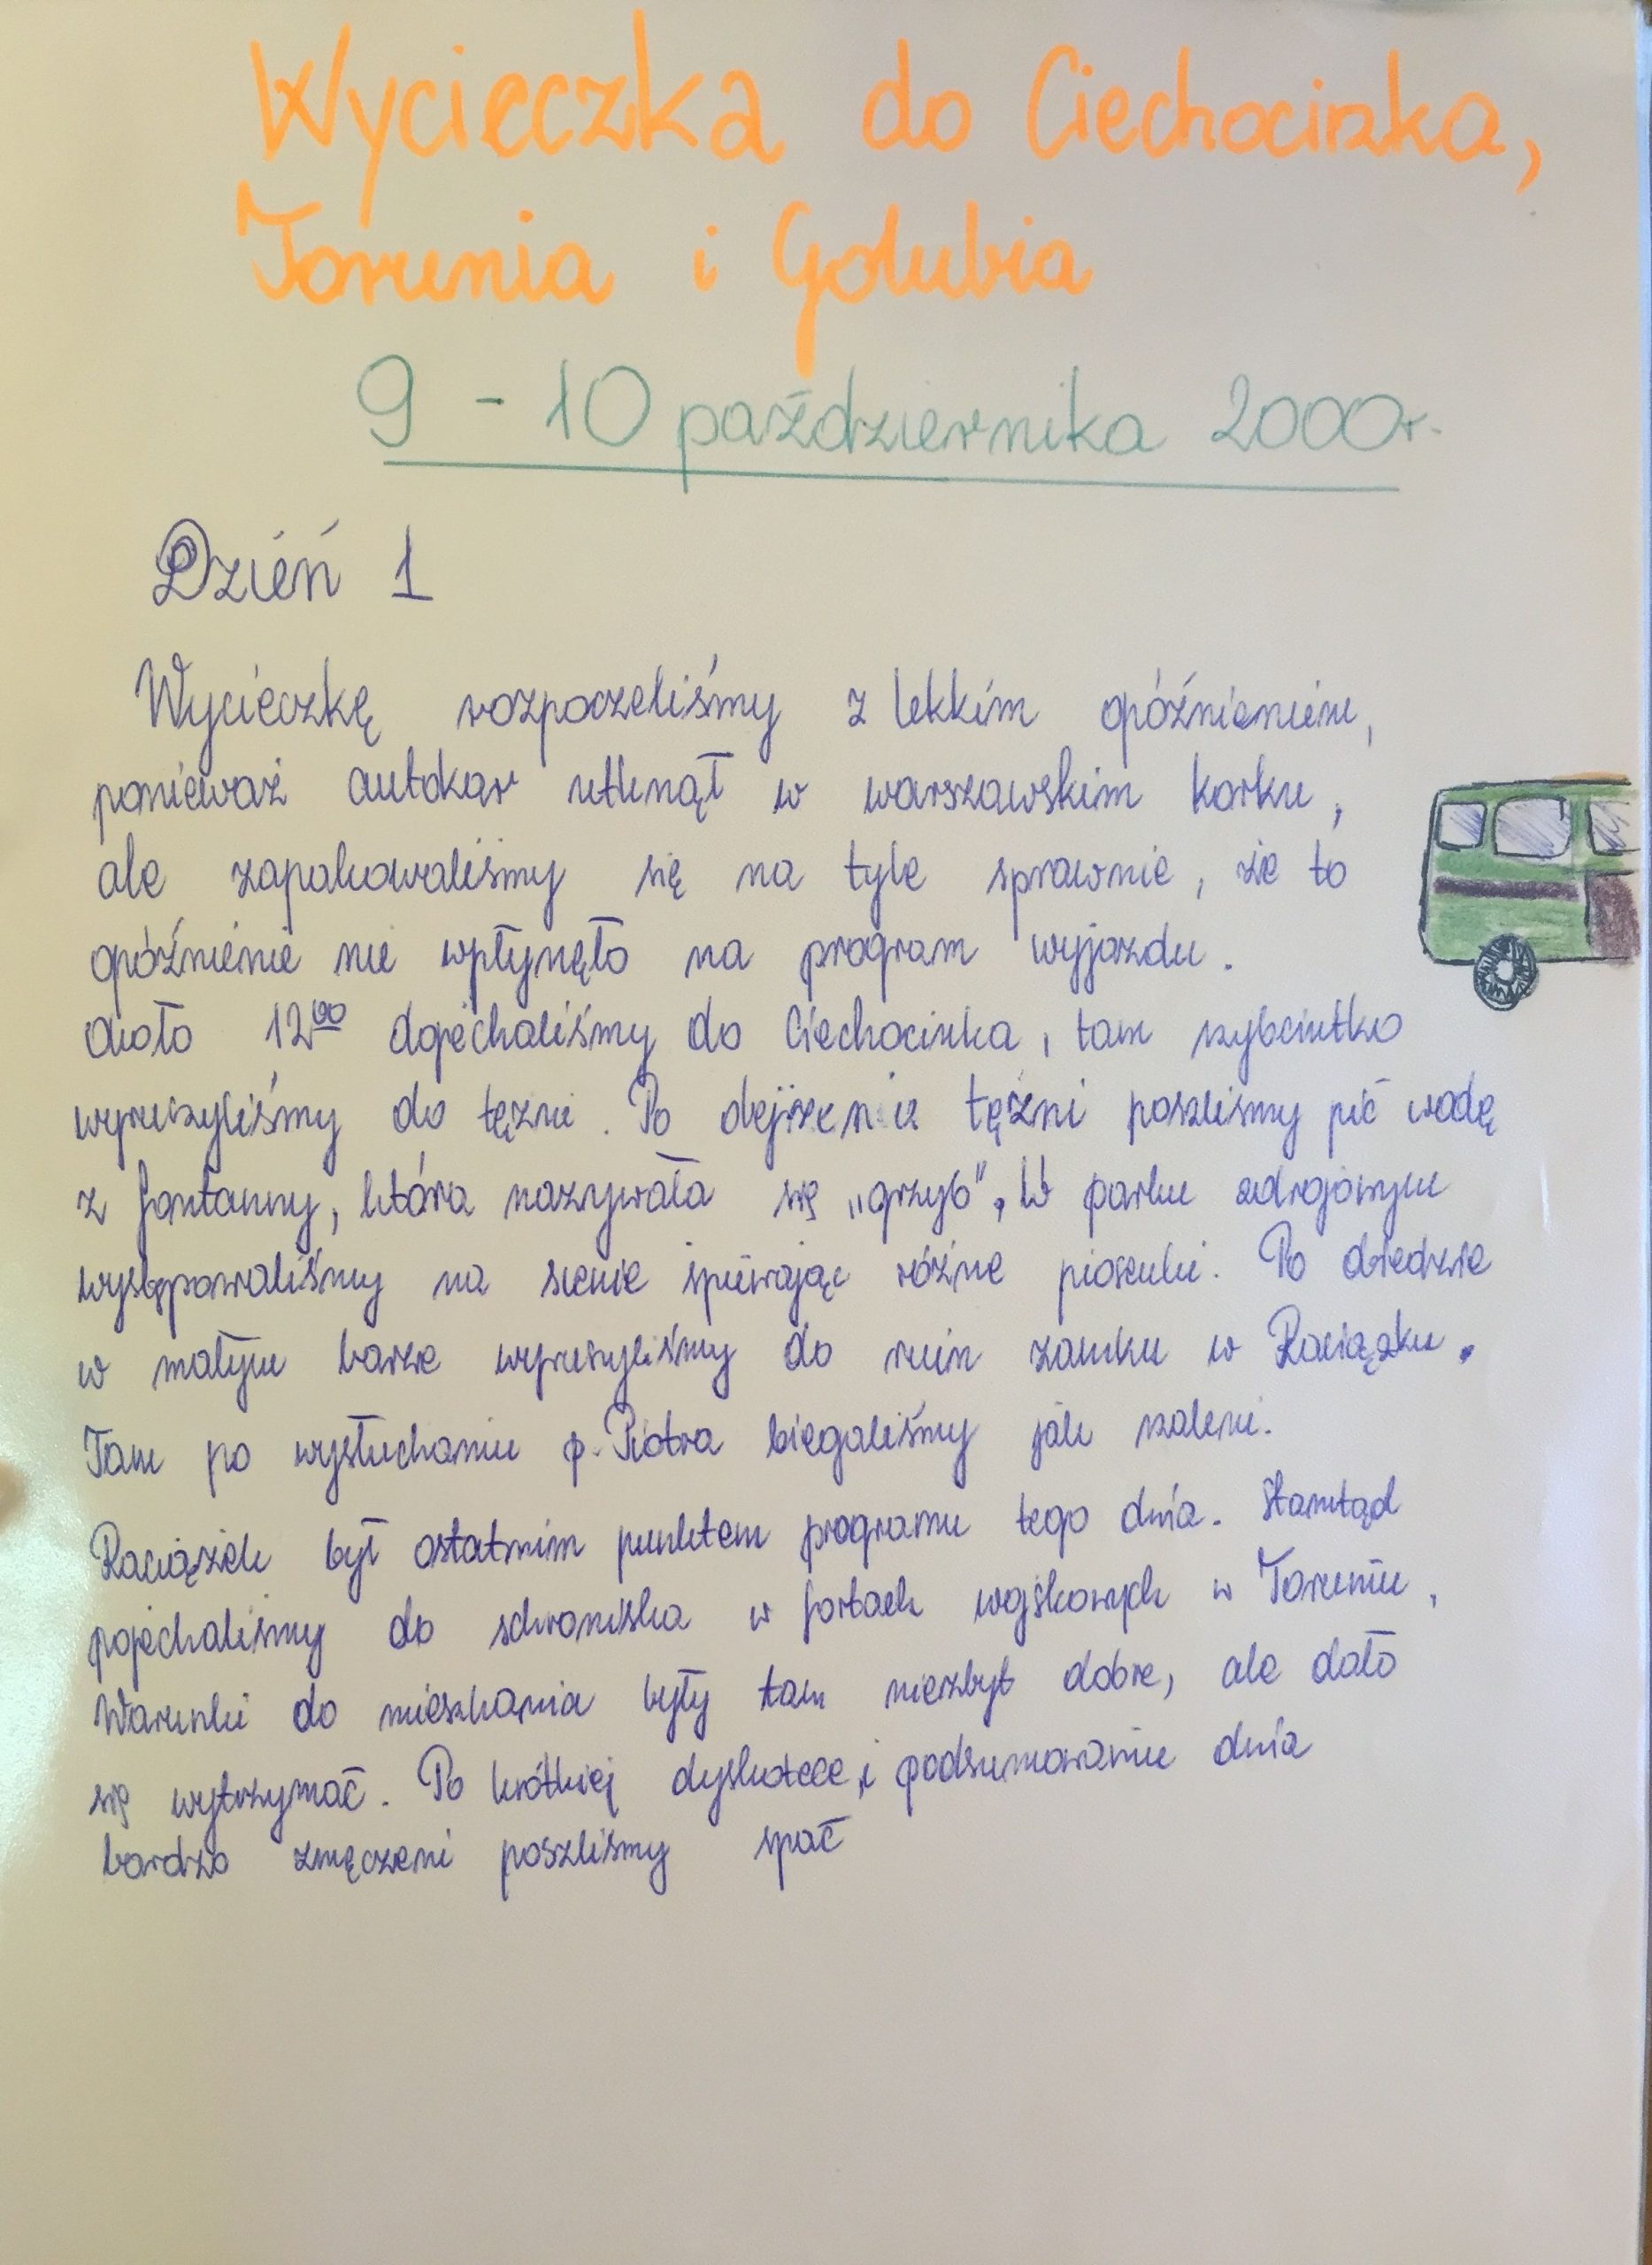 Wycieczka do Ciechocinka,
Torunia i Golubia
9 - 10 października 2000r.
Dzień 1
Wycieczkę rozpoczeliśmy z lekkim opóźnieniem,
ponieważ autokar utknął w warszawskim korku,
ale zapakowaliśmy się na tyle sprawnie, że to
opóźnienie nie wpłynęło na program wyjazdu.
około 12⁰⁰ dojechaliśmy do Ciechocinka, tam szybciutko
wyruszyliśmy do tężni. Po obejżeniu tężni poszliśmy pić wodę
z fontanny, która nazywała się „grzyb”. W parku zdrojowym
występowaliśmy na scenie śpiewając różne piosenki. Po obiedzie
w małym barze wyruszyliśmy do ruin zamku w Raciążku.
Tam po wysłuchaniu p. Piotra biegaliśmy jak szaleni.
Raciążek był ostatnim punktem programu tego dnia. Stamtąd
pojechaliśmy do schroniska w fortach wojskowych w Toruniu.
Warunki do mieszkania były tam niezbyt dobre, ale dało
się wytrzymać. Po krótkiej dyskotece i podsumowaniu dnia
bardzo zmęczeni poszliśmy spać